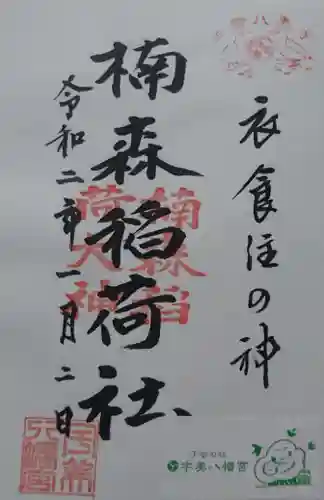 衣食住の神
楠森稲荷社
楠森稲
荷大神
令和二年一月二日
宇美八幡宮